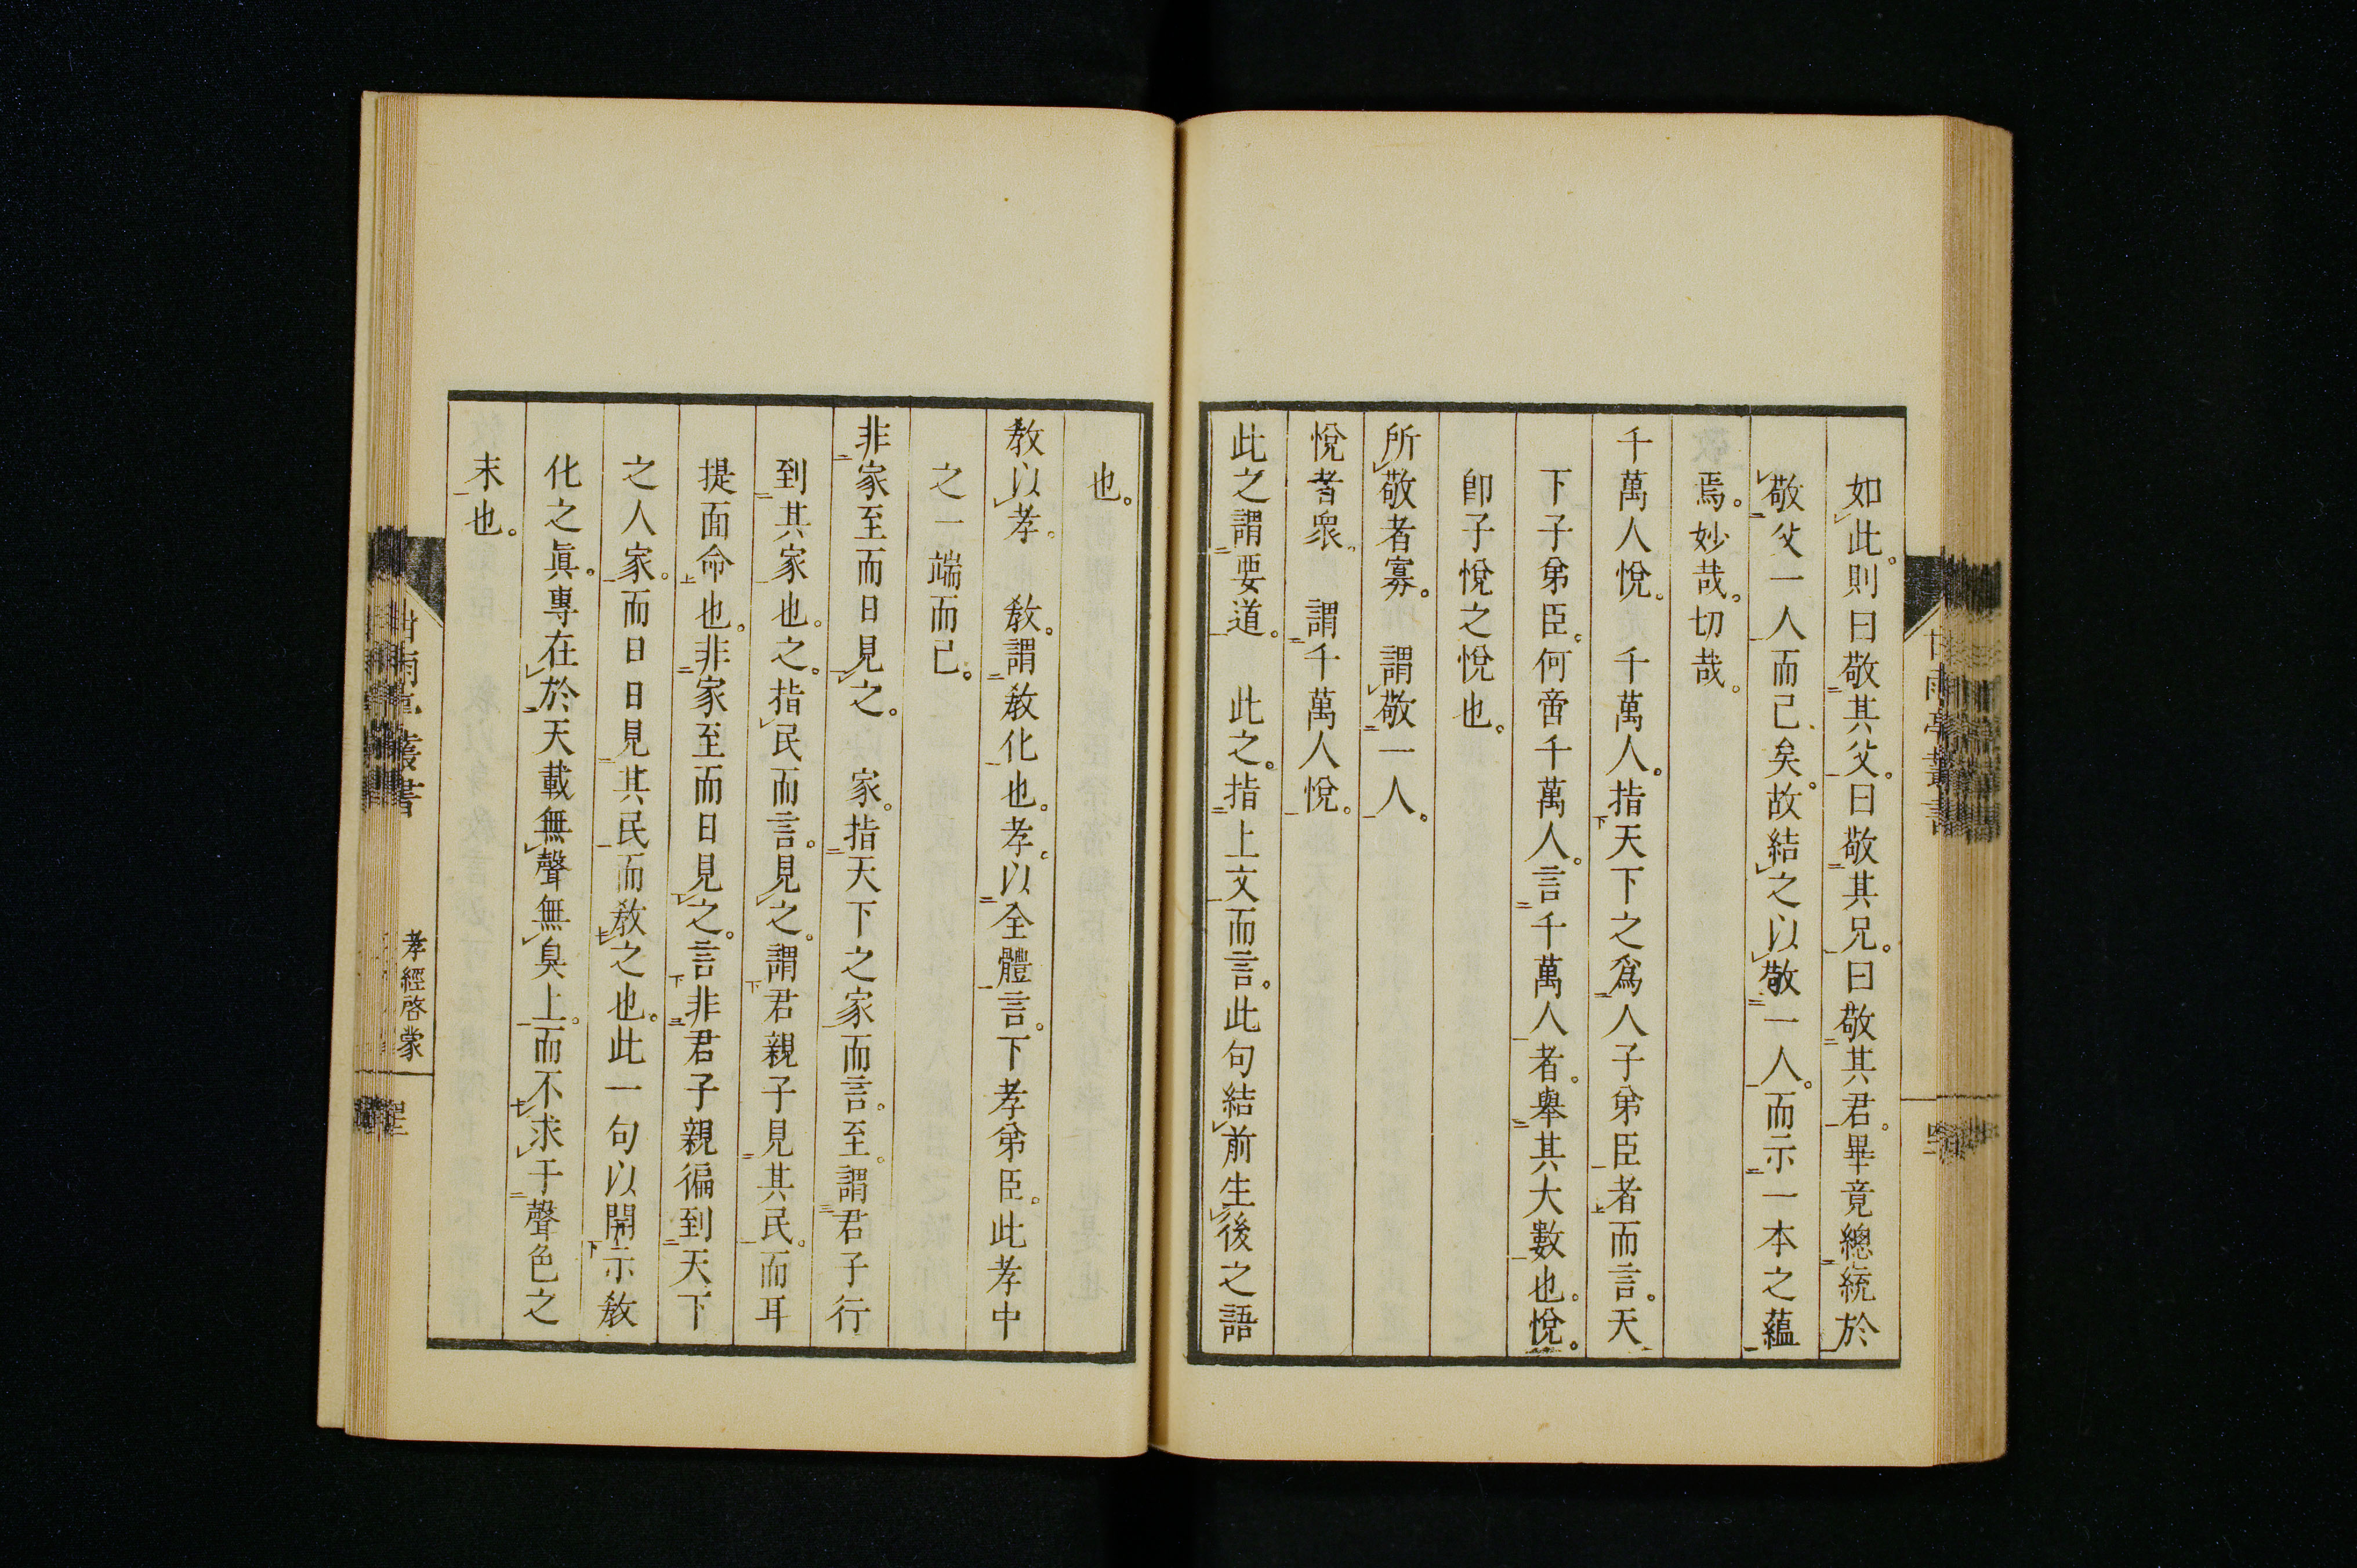 如此。則曰敬其父。曰敬其兄。曰敬其君。畢竟總統於
敬父一人而已矣。故結之以敬一人。而示一本之蘊
焉。妙哉。切哉。
千萬人悅。　千萬人。指天下之爲人子弟臣者而言。天
下子弟臣。何啻千萬人。言千萬人者。舉其大數也。悅。
卽子悅之悅也。
所敬者寡。　謂敬一人。
悅者衆。　謂千萬人悅。
此之謂要道。　此之。指上文而言。此句結前生後之語
也。
教以孝。　教。謂教化也。孝。以全體言。下孝弟臣。此孝中
之一端而已。
非家至而日見之。　家。指天下之家而言。至。謂君子行
到其家也。之。指民而言。見之。謂君親子見其民。而耳
提面命也。非家至而日見之。言非君子親徧到天下
之人家。而日日見其民而教之也。此一句以開示教
化之眞。專在於天載無聲無臭上。而不求于聲色之
末也。
甘雨亭叢書
孝經啓蒙